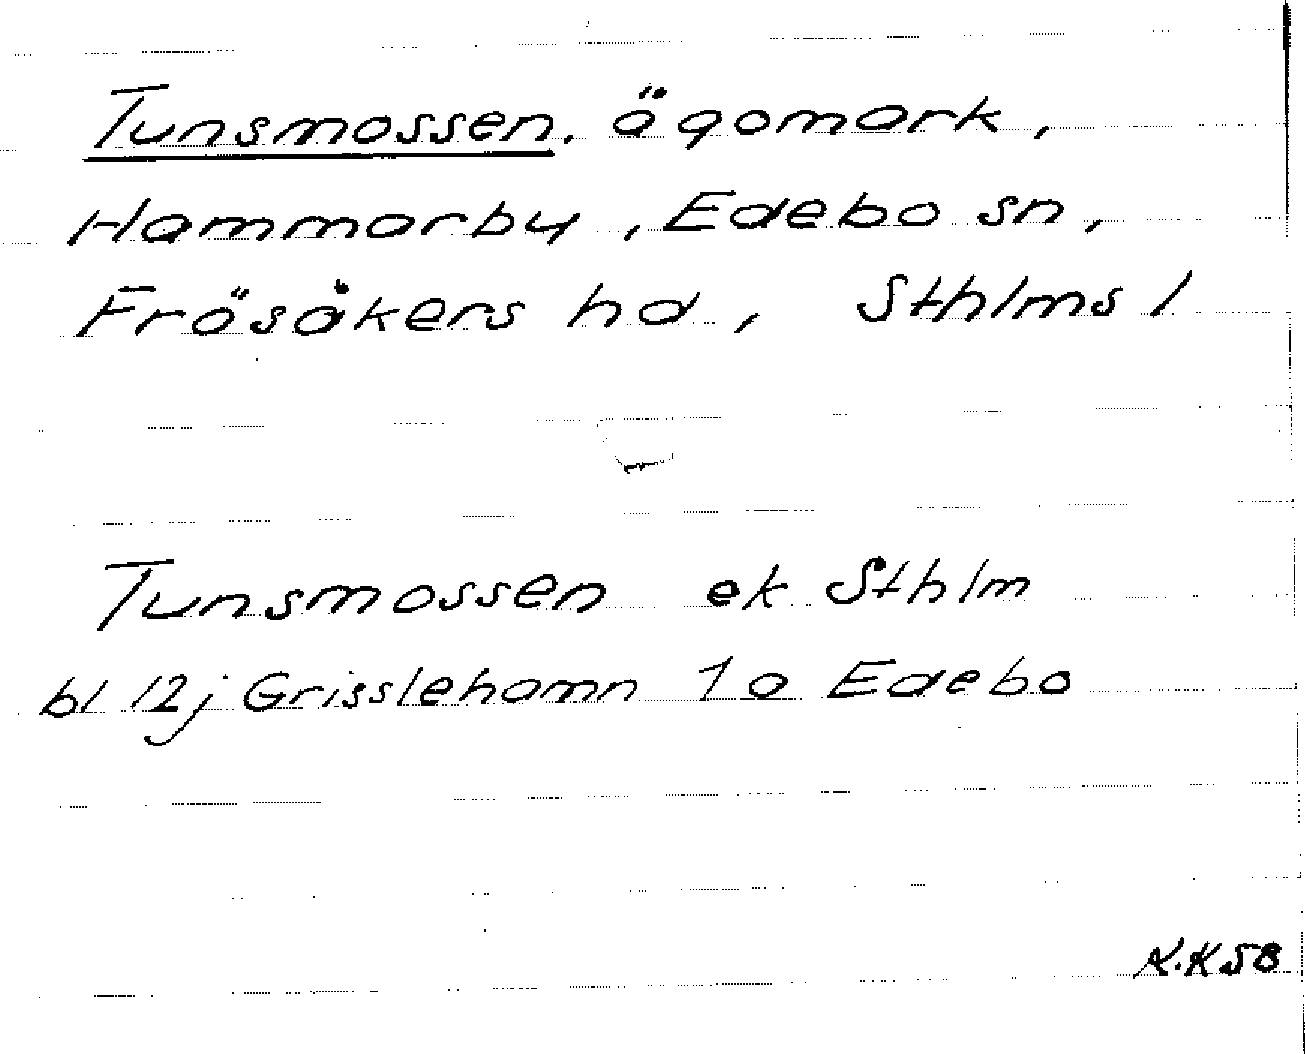 Tunsmossen, ägomark,
Hammarby, Edebo sn,
Frösåkers hd, Sthlms l
Tunsmossen ek Sthlm
bl 12j Grisslehamn 1a Edebo
K.K 58